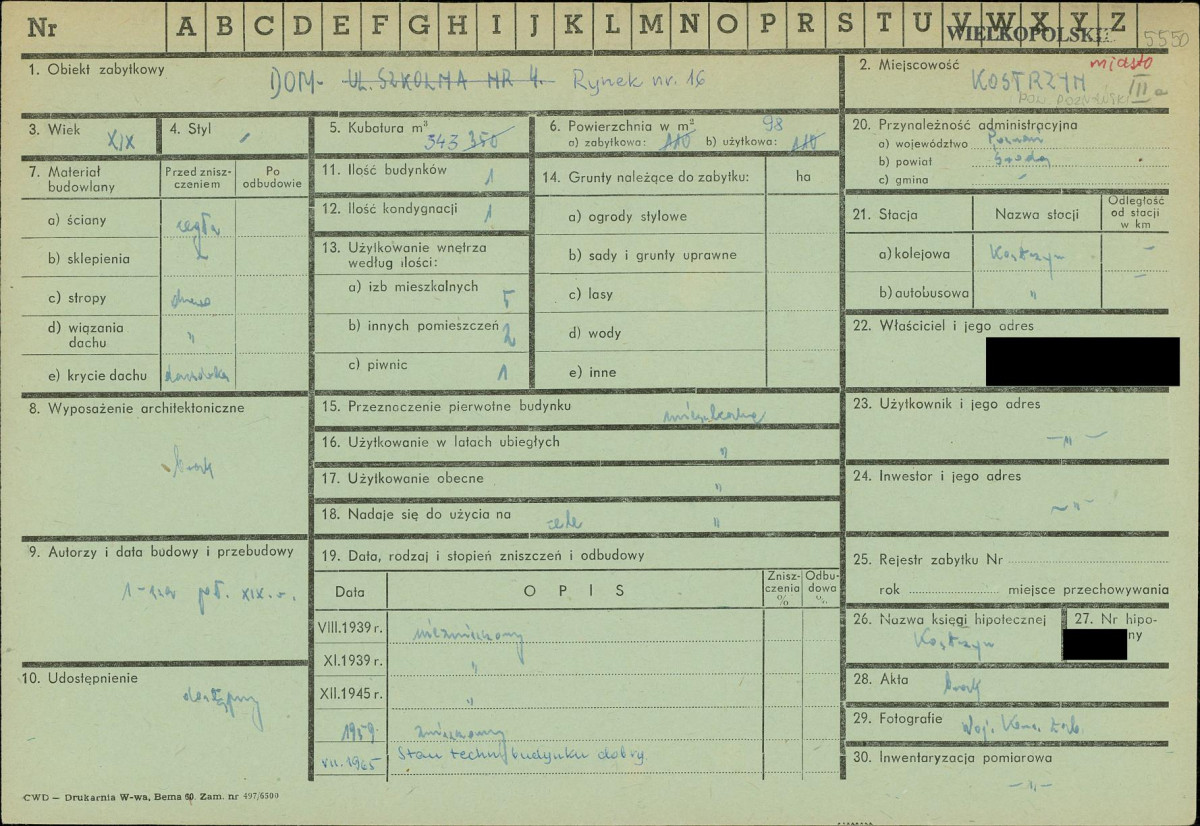 Nr A B C D E F G H I J K L M N O P R S T U V W X Y Z
WIELKOPOLSKIE 5550
1. Obiekt zabytkowy DOM - UL. SZKOLNA NR 4. Rynek nr. 16
2. Miejscowość miasto
KOSTRZYN III a
POW. POZNAŃSKI
3. Wiek XIX
4. Styl -
5. Kubatura m³ 343 350
6. Powierzchnia w m² 98
a) zabytkowa: 110 b) użytkowa: 110
7. Materiał budowlany
Przed zniszczeniem
Po odbudowie
a) ściany cegła
b) sklepienia
c) stropy drewo
d) wiązania dachu "
e) krycie dachu dachówka
8. Wyposażenie architektoniczne
brak
9. Autorzy i data budowy i przebudowy
1-sza poł. XIX. w.
10. Udostępnienie
dostępny
11. Ilość budynków 1
12. Ilość kondygnacji 1
13. Użytkowanie wnętrza według ilości:
a) izb mieszkalnych 5
b) innych pomieszczeń 2
c) piwnic 1
14. Grunty należące do zabytku: ha
a) ogrody stylowe
b) sady i grunty uprawne
c) lasy
d) wody
e) inne
15. Przeznaczenie pierwotne budynku mieszkalne
16. Użytkowanie w latach ubiegłych "
17. Użytkowanie obecne "
18. Nadaje się do użycia na cele "
19. Data, rodzaj i stopień zniszczeń i odbudowy
Data OPIS Zniszczenia % Odbudowa %
VIII.1939 r. niezniszczony
XI.1939 r. "
XII.1945 r. "
1959 zniszczony
VII.1965 Stan techn. budynku dobry.
20. Przynależność administracyjna
a) województwo Poznań
b) powiat Środa
c) gmina -
21. Stacja Nazwa stacji Odległość od stacji w km
a) kolejowa Kostrzyn -
b) autobusowa " -
22. Właściciel i jego adres
23. Użytkownik i jego adres
- " -
24. Inwestor i jego adres
- " -
25. Rejestr zabytku Nr
rok miejsce przechowywania
26. Nazwa księgi hipotecznej
Kostrzyn
27. Nr hipo-
ny
28. Akta brak
29. Fotografie Woj. Kons. Zab.
30. Inwentaryzacja pomiarowa
- " -
CWD — Drukarnia W-wa, Bema 60. Zam. nr 497/6500